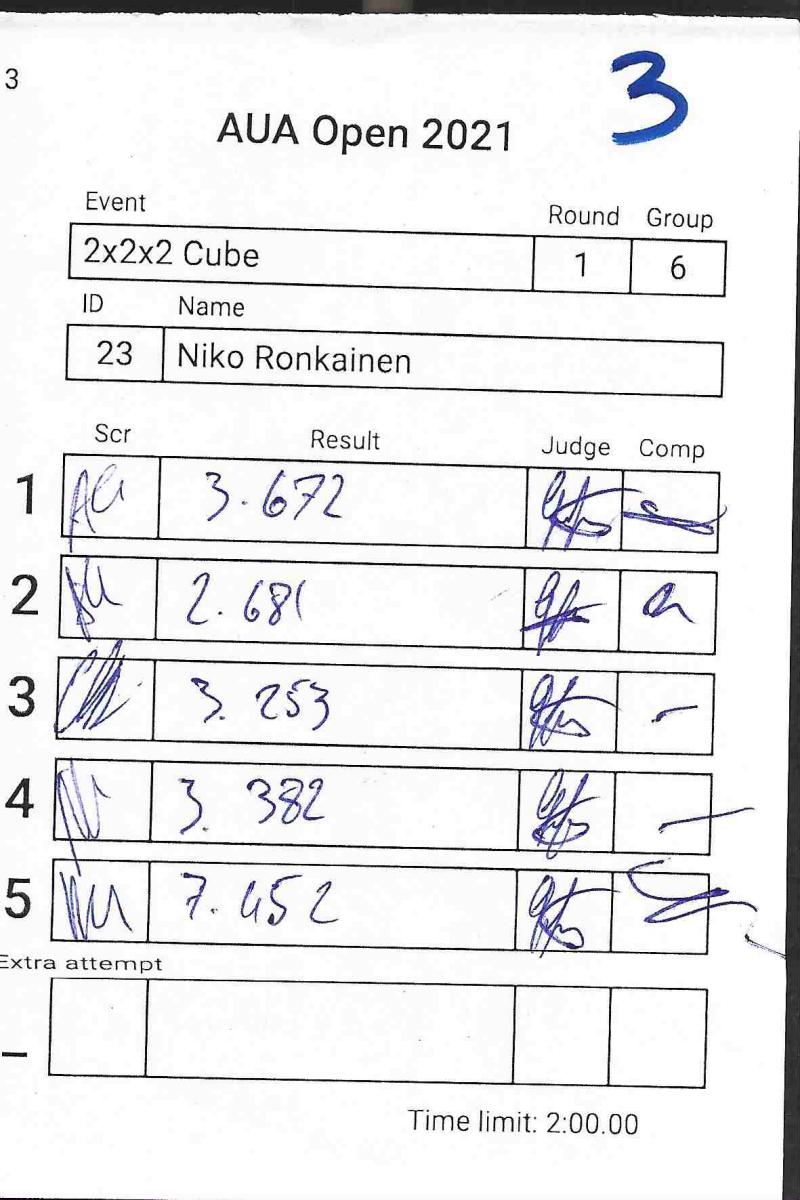 3
3
AUA Open 2021
Event Round Group
2x2x2 Cube 1 6
ID Name
23 Niko Ronkainen
Scr Result Judge Comp
1 3.672
2 2.681
3 3.253
4 3.382
5 7.452
Extra attempt
_
Time limit: 2:00.00